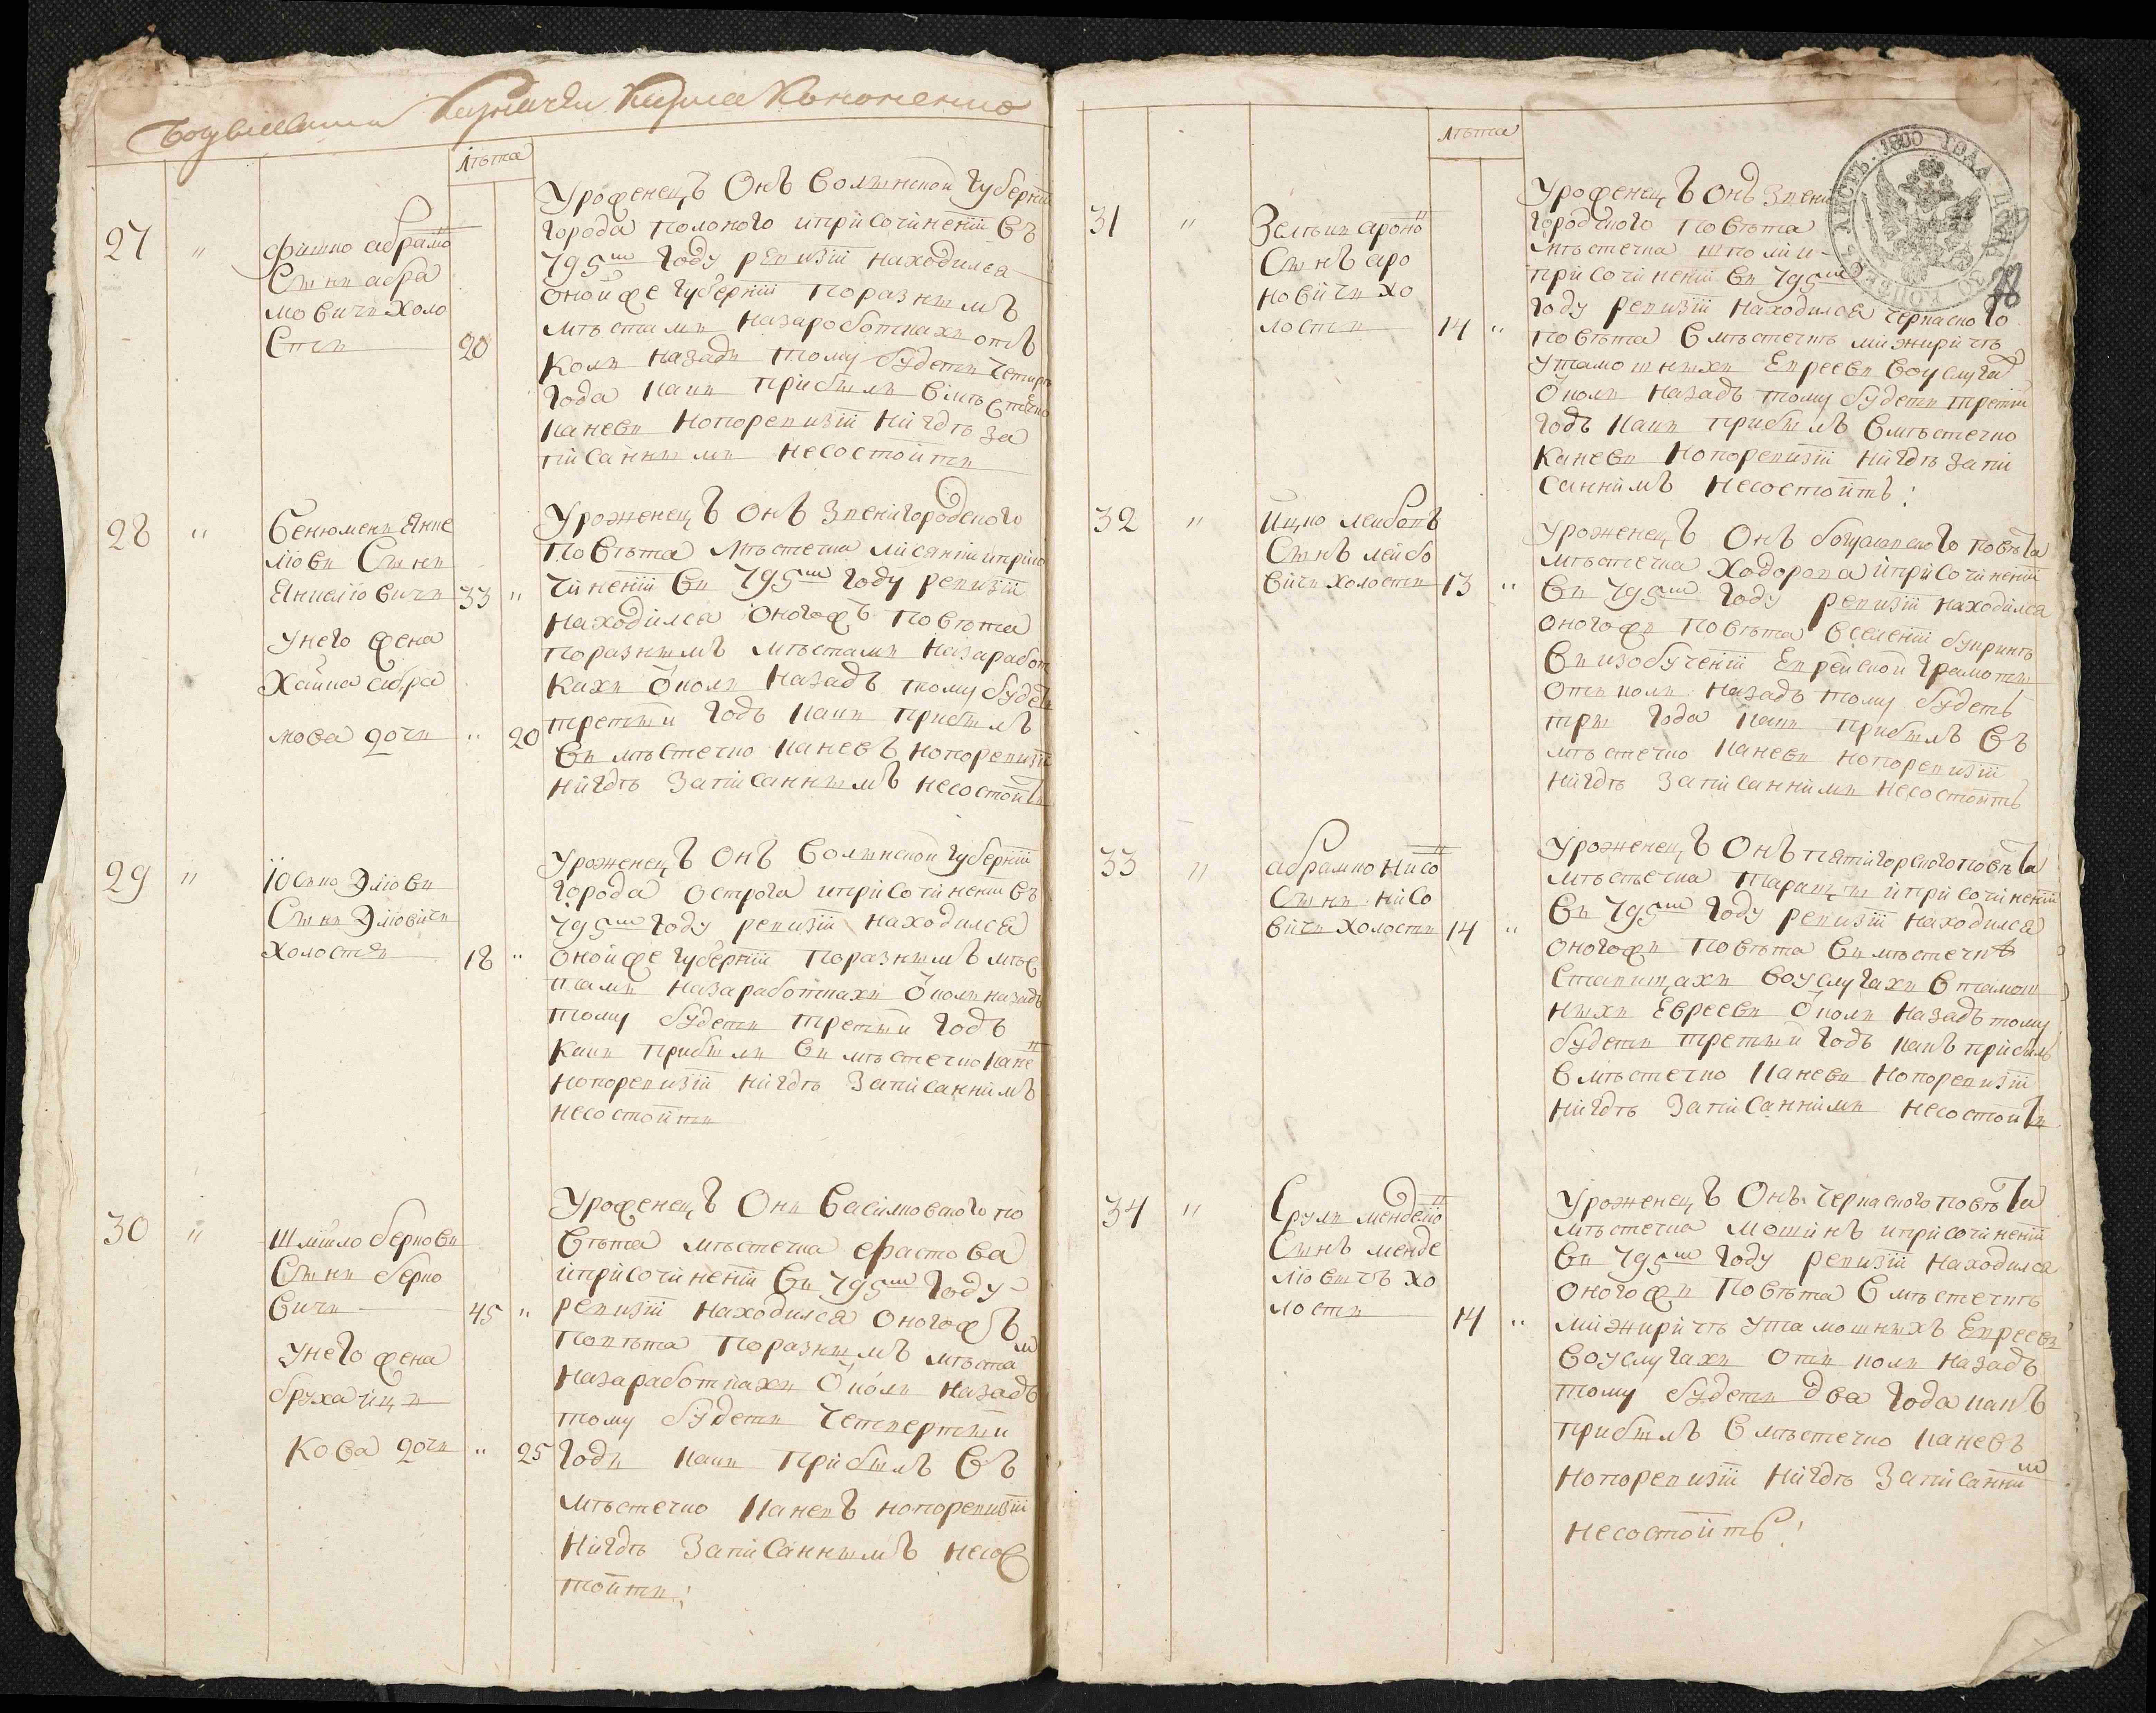 лѣта
27 " Фишко абрамо
Сынъ абра
мовичъ холо
стъ 20
Уроженецъ Онъ Волынской губернїи
города полоного ипри сочиненїи въ
795м году ревизїи находился
оной же губернїи по разнымъ
мѣстамъ назаработкахъ отъ
коль назадъ тому будетъ четыре
года какъ прибылъ вмѣстечко
каневъ но поревизїи нигдѣ за
писаннымъ несостоитъ
28 " Бенюменъ Янке
лїовъ Сынъ
Янкелїовичъ 33 "
Унего жена
Хайка абра
мова дочь " 20
Уроженецъ Онъ Звенигородского
Повѣта мѣстечка лисянки ипри со
чиненїи въ 795м году ревизїи
находился оногожъ повѣта
поразнымъ мѣстамъ Назаработ
кахъ Околь Назадъ тому будетъ
третїи годъ какъ прибылъ
въ мѣстечко каневъ но поревизїи
нигдѣ записаннымъ несостоитъ
29 " Іосько Элїовъ
Сынъ Элїовичъ
холостъ 18 "
Уроженецъ Онъ Волынской губернїи
города острога ипри сочиненїи въ
795м году ревизїи находился
оной же губернїи поразнымъ мѣс
тамъ назаработкахъ Околь назадъ
тому будетъ третїи годъ
какъ прибылъ въ мѣстечко кане
но поревизїи нигдѣ записаннимъ
несостоитъ
30 " Шмїило берковъ
Сынъ берко
вичъ 45 "
Унего жена
бруха ицъ
кова дочь " 25
Уроженецъ Онъ Василковского по
вѣта мѣстечка фастова
ипри сочиненїи въ 795м году
ревизїи находился оногожъ
повѣта поразнымъ мѣстам
назаработкахъ Околь назадъ
тому будетъ четвертїи
годъ какъ прибылъ въ
мѣстечко каневъ но поревизїи
нигдѣ записаннымъ несос
тоитъ
лѣта
31 "
Сынъ аро
новичъ хо
лостъ 14 "
Уроженецъ Онъ Звени
городского повѣта
мѣстечка шполи и
при сочиненїи въ 795м
году ревизїи находился черкаского
повѣта вмѣстечкѣ межиричѣ
утамошныхъ Евреевъ воуслугах
Околь назадъ тому будетъ третїи
годъ какъ прибылъ вмѣстечко
каневъ но поревизїи нигдѣ запи
саннимъ несостоитъ
32 " Ицко лейбовъ
Сынъ лейбо
вичъ холостъ 13 "
Уроженецъ Онъ богуславского повѣта
мѣстечка ходорова ипри сочиненїи
въ 795м году ревизїи находился
оногожъ повѣта вселенїи
въ изобученїи Еврейской грамоты
отъ коль назадъ тому будетъ
три года какъ прибылъ въ
мѣстечко каневъ но поревизїи
нигдѣ записаннимъ несостоитъ
33 " абрамко нисо
Сынъ нисо
вичъ холостъ 14 "
Уроженецъ Онъ пятигорского повѣта
мѣстечка таращи ипри сочиненїи
въ 795м году ревизїи находился
оногожъ повѣта въ мѣстечкѣ
ставищахъ воуслугахъ втамош
ныхъ Евреевъ Околь назадъ тому
будетъ третїи годъ какъ прибылъ
вмѣстечко каневъ но поревизїи
нигдѣ записаннимъ несостоитъ
34 " Сруль менделїо
Сынъ менде
лїовичъ хо
лостъ 14 "
Уроженецъ Онъ черкаского повѣта
мѣстечка мошинъ ипри сочиненїи
въ 795м году ревизїи находился
оногожъ повѣта вмѣстечкѣ
межиричѣ утамошныхъ Евреевъ
воуслугахъ отъ коль назадъ
тому будетъ два года какъ
прибылъ вмѣстечко каневъ
но поревизїи нигдѣ записанним
несостоитъ